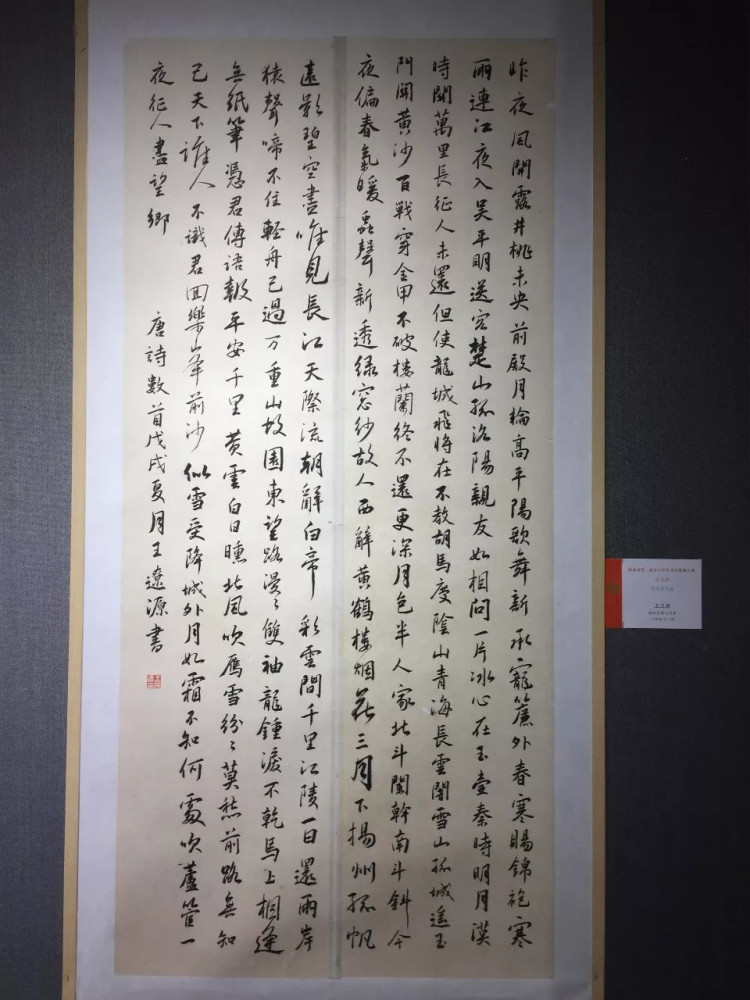 昨夜風開露井桃未央前殿月輪高平陽歌舞新承寵簾外春寒賜錦袍寒
雨連江夜入吴平明送客楚山孤洛陽親友如相問一片冰心在玉壺秦時明月漢
時關萬里長征人未還但使龍城飛將在不教胡馬度陰山青海長雲闇雪山孤城遥玉
門關黄沙百戰穿金甲不破楼蘭終不還更深月色半人家北斗闌幹南斗斜今
夜偏春氣暖蟲聲新透緑窓紗故人西辭黄鶴楼烟花三月下揚州孤帆
遠影碧空盡唯見長江天際流朝辭白帝彩雲間千里江陵一日還兩岸
猿聲啼不住輕舟已過万重山故園東望路漫々雙袖龍鍾淚不乾馬上相逢
無紙筆憑君傳語報平安千里黄雲白日曛北風吹雁雪紛々莫愁前路無知
己天下誰人不識君回樂峯前沙似雪受降城外月如霜不知何處吹蘆管一
夜征人盡望鄉
唐詩數首戊戌夏月王遼源書